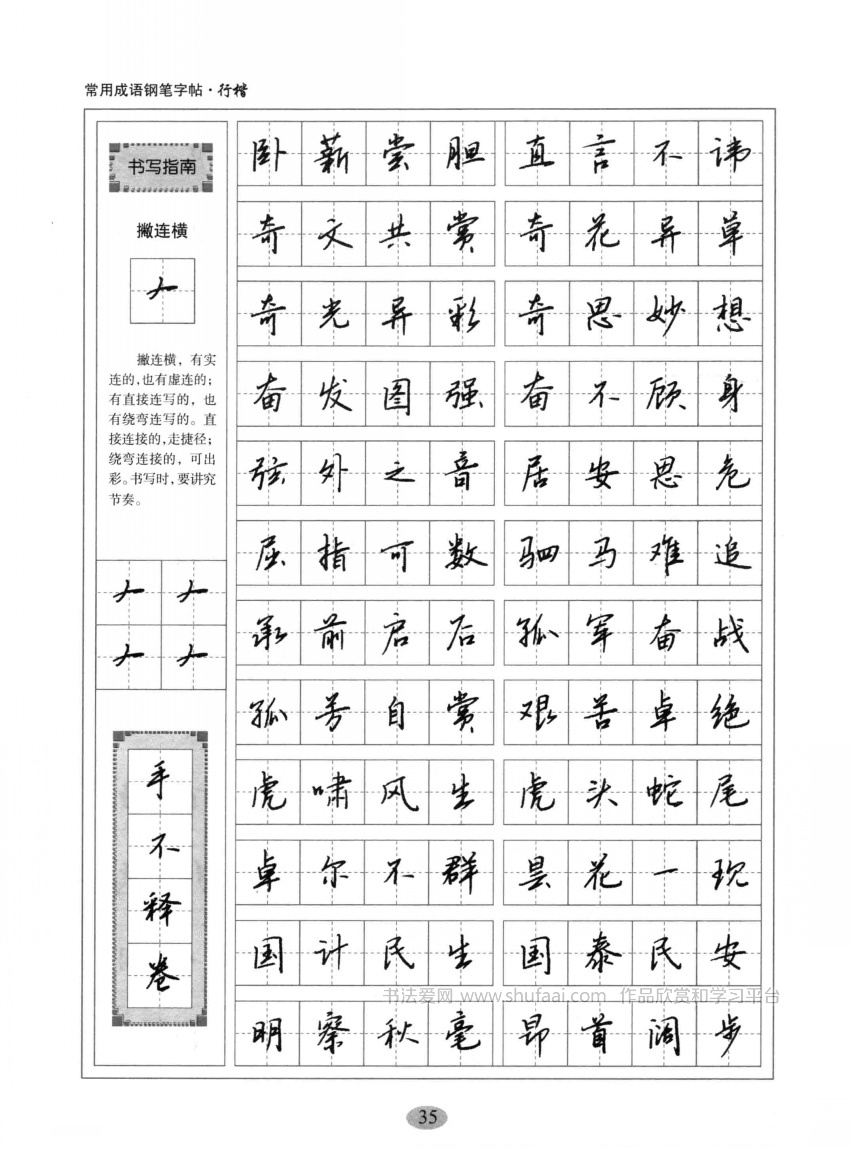 常用成语钢笔字帖·行楷
书写指南
撇连横
撇连横，有实
连的,也有虚连的;
有直接连写的，也
有绕弯连写的。直
接连接的,走捷径;
绕弯连接的，可出
彩。书写时,要讲究
节奏。
手不释卷
卧薪尝胆 直言不讳
奇文共赏 奇花异草
奇光异彩 奇思妙想
奋发图强 奋不顾身
弦外之音 居安思危
屈指可数 驷马难追
承前启后 孤军奋战
孤芳自赏 艰苦卓绝
虎啸风生 虎头蛇尾
卓尔不群 昙花一现
国计民生 国泰民安
书法爱网 www.shufaai.com 作品欣赏和学习平台
明察秋毫 昂首阔步
35